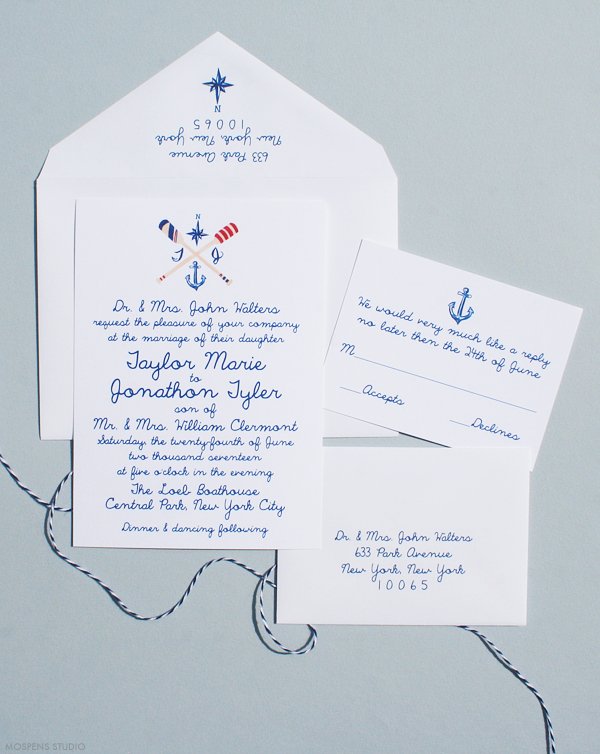 N
633 Park Avenue
New York, New York
10065
N
T J
Dr. & Mrs. John Walters
request the pleasure of your company
at the marriage of their daughter
Taylor Marie
to
Jonathon Tyler
son of
Mr. & Mrs. William Clermont
Saturday, the twenty-fourth of June
two thousand seventeen
at five o'clock in the evening
The Loeb Boathouse
Central Park, New York City
Dinner & dancing following
We would very much like a reply
no later then the 24th of June
M
Accepts
Declines
Dr. & Mrs John Walters
633 Park Avenue
New York, New York
10065
MOSPENS STUDIO